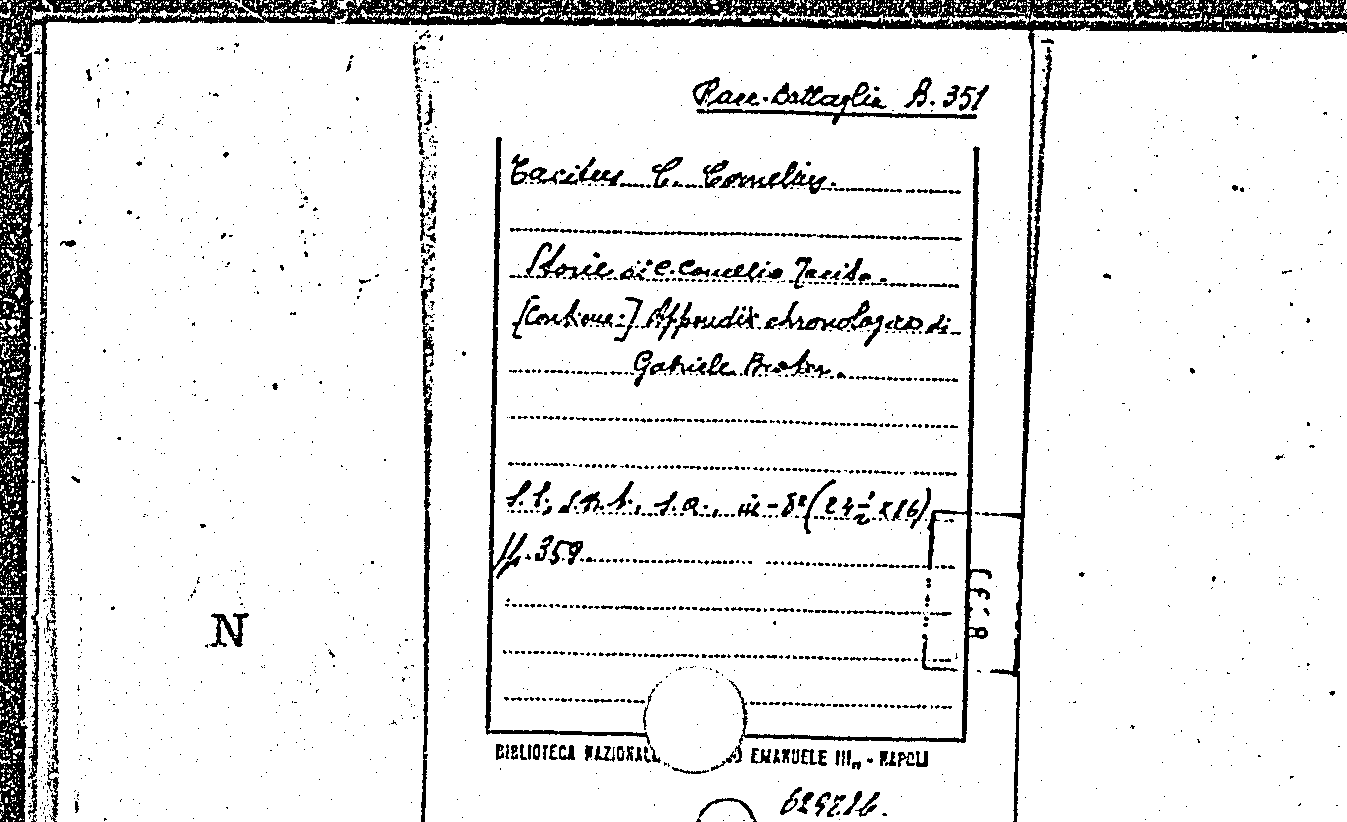 Racc. Battaglia B. 351
Tacitus C. Cornelius.
Storie di C. Cornelio Tacito.
[Contiene:] Appendix chronologica di
Gabriele Brotier.
s.l., s.n.t., s.a., in-8º (24½ x 16)
ff. 359.
N
BIBLIOTECA NAZIONALE EMANUELE III„ - NAPOLI